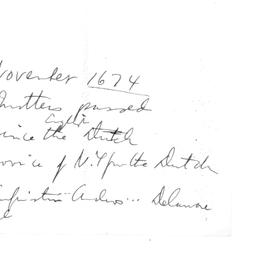 November 1674
matters passed
since the Dutch
province of N.Y for the Dutch
Andros... Delaware